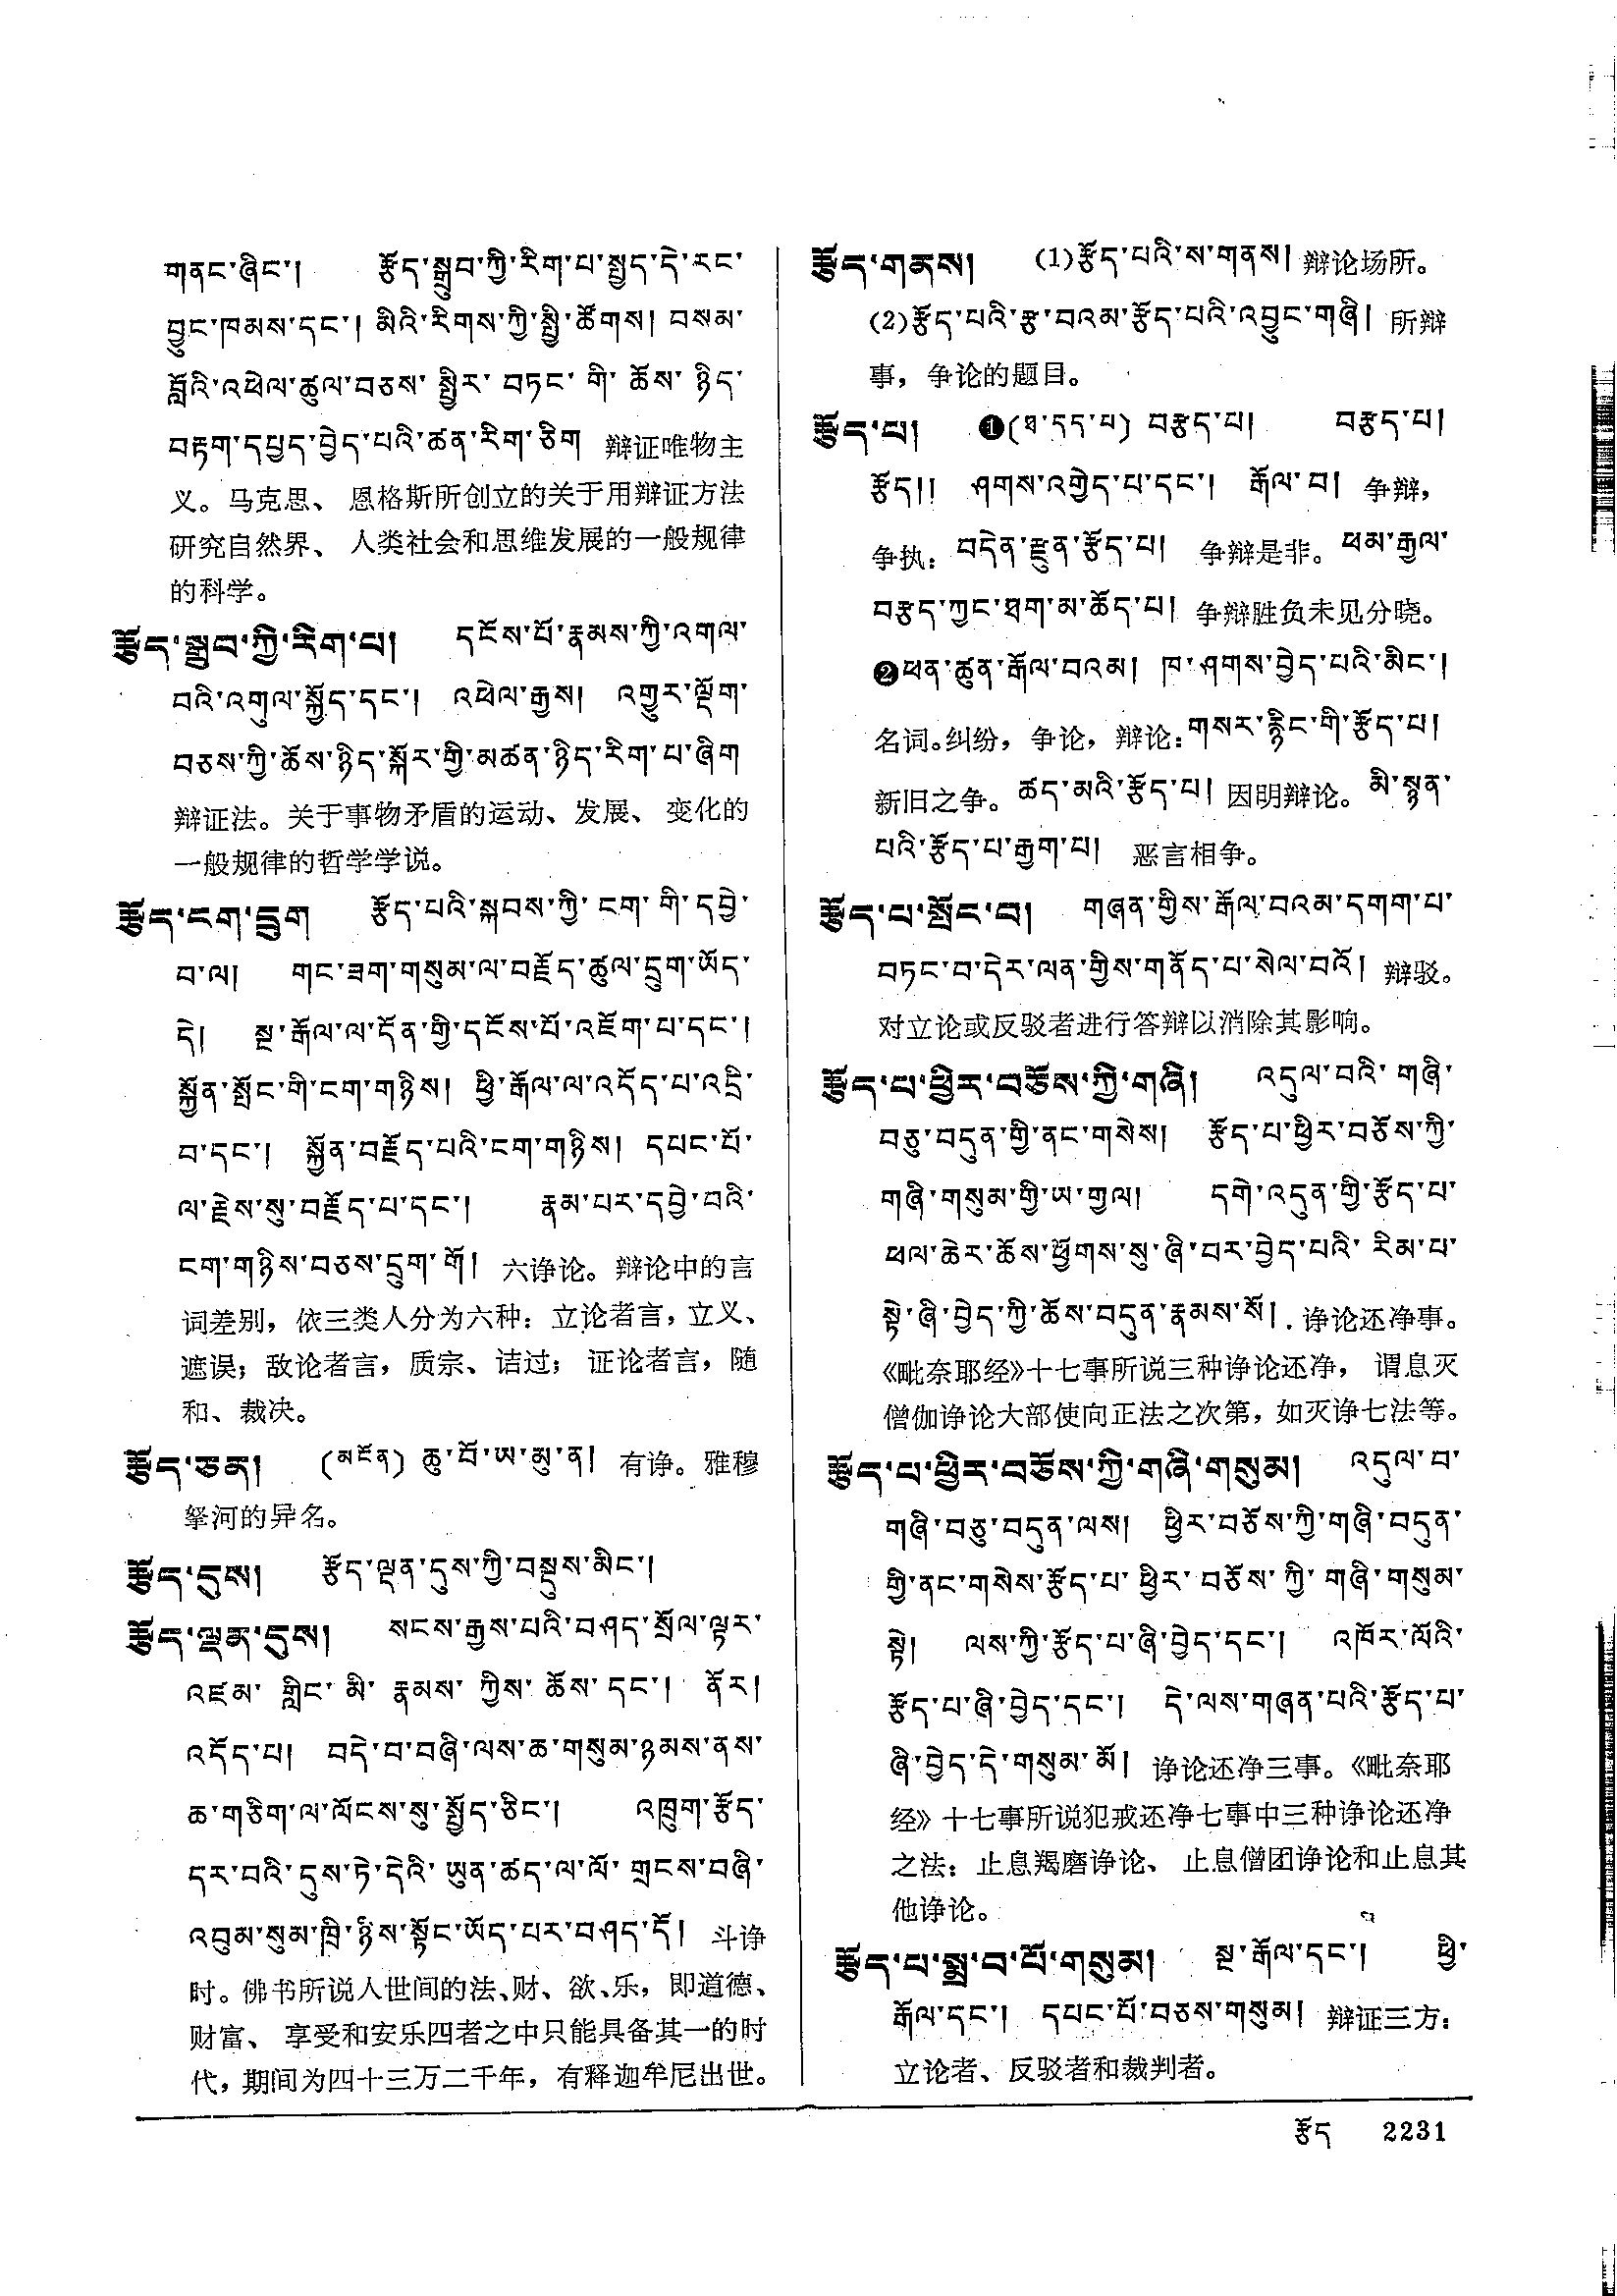 གནང་ཞིང་། རྩོད་སྒྲུབ་ཀྱི་རིག་པ་སྤྱད་དེ་རང་
བྱུང་ཁམས་དང་། མིའི་རིགས་ཀྱི་སྤྱི་ཚོགས། བསམ་
བློའི་འཕེལ་ཚུལ་བཅས་སྤྱིར་བཏང་གི་ཆོས་ཉིད་
བརྟག་དཔྱད་བྱེད་པའི་ཚན་རིག་ཅིག 辩证唯物主
义。马克思、恩格斯所创立的关于用辩证方法
研究自然界、人类社会和思维发展的一般规律
的科学。
རྩོད་སྒྲུབ་ཀྱི་རིག་པ། དངོས་པོ་རྣམས་ཀྱི་འགལ་
བའི་འགུལ་སྐྱོད་དང་། འཕེལ་རྒྱས། འགྱུར་ལྡོག་
བཅས་ཀྱི་ཆོས་ཉིད་སྐོར་གྱི་མཚན་ཉིད་རིག་པ་ཞིག
辩证法。关于事物矛盾的运动、发展、变化的
一般规律的哲学学说。
རྩོད་ངག་དྲུག རྩོད་པའི་སྐབས་ཀྱི་ངག་གི་དབྱེ་
བ་ལ། གང་ཟག་གསུམ་ལ་བརྗོད་ཚུལ་དྲུག་ཡོད་
དེ། སྔ་རྒོལ་ལ་དོན་གྱི་དངོས་པོ་འཇོག་པ་དང་།
སྐྱོན་སྤོང་གི་ངག་གཉིས། ཕྱི་རྒོལ་ལ་འདོད་པ་འདྲི་
བ་དང་། སྐྱོན་བརྗོད་པའི་ངག་གཉིས། དཔང་པོ་
ལ་རྗེས་སུ་བརྗོད་པ་དང་། རྣམ་པར་དབྱེ་བའི་
ངག་གཉིས་བཅས་དྲུག་གོ། 六诤论。辩论中的言
词差别，依三类人分为六种：立论者言，立义、
遮误；敌论者言，质宗、诘过；证论者言，随
和、裁决。
རྩོད་ཅན། (མངོན) ཆུ་བོ་ཡ་མུ་ན། 有诤。雅穆
拏河的异名。
རྩོད་དུས། རྩོད་ལྡན་དུས་ཀྱི་བསྡུས་མིང་།
རྩོད་ལྡན་དུས། སངས་རྒྱས་པའི་བཤད་སྲོལ་ལྟར་
འཛམ་གླིང་མི་རྣམས་ཀྱིས་ཆོས་དང་། ནོར།
འདོད་པ། བདེ་བ་བཞི་ལས་ཆ་གསུམ་ཉམས་ནས་
ཆ་གཅིག་ལ་ལོངས་སུ་སྤྱོད་ཅིང་། འཁྲུག་རྩོད་
དར་བའི་དུས་ཏེ་དེའི་ཡུན་ཚད་ལ་ལོ་གྲངས་བཞི་
འབུམ་སུམ་ཁྲི་ཉིས་སྟོང་ཡོད་པར་བཤད་དོ། 斗诤
时。佛书所说人世间的法、财、欲、乐，即道德、
财富、享受和安乐四者之中只能具备其一的时
代，期间为四十三万二千年，有释迦牟尼出世。
རྩོད་གནས། (1)རྩོད་པའི་ས་གནས། 辩论场所。
(2)རྩོད་པའི་རྩ་བའམ་རྩོད་པའི་འབྱུང་གཞི། 所辩
事，争论的题目。
རྩོད་པ། ❶(ཐ་དད་པ) བརྩད་པ། བརྩད་པ།
རྩོད།། ཤགས་འགྱེད་པ་དང་། རྒོལ་བ། 争辩，
争执：བདེན་རྫུན་རྩོད་པ། 争辩是非。ཕམ་རྒྱལ་
བརྩད་ཀྱང་ཐག་མ་ཆོད་པ། 争辩胜负未见分晓。
❷ཕན་ཚུན་རྒོལ་བའམ། ཁ་ཤགས་བྱེད་པའི་མིང་།
名词。纠纷，争论，辩论：གསར་རྙིང་གི་རྩོད་པ།
新旧之争。ཚད་མའི་རྩོད་པ། 因明辩论。མི་སྙན་
པའི་རྩོད་པ་རྒྱག་པ། 恶言相争。
རྩོད་པ་སྤོང་བ། གཞན་གྱིས་རྒོལ་བའམ་དགག་པ་
བཏང་བ་དེར་ལན་གྱིས་གནོད་པ་སེལ་བའོ། 辩驳。
对立论或反驳者进行答辩以消除其影响。
རྩོད་པ་ཕྱིར་བཅོས་ཀྱི་གཞི། འདུལ་བའི་གཞི་
བཅུ་བདུན་གྱི་ནང་གསེས། རྩོད་པ་ཕྱིར་བཅོས་ཀྱི་
གཞི་གསུམ་གྱི་ཡ་གྱལ། དགེ་འདུན་གྱི་རྩོད་པ་
ཕལ་ཆེར་ཆོས་ཕྱོགས་སུ་ཞི་བར་བྱེད་པའི་རིམ་པ་
སྟེ་ཞི་བྱེད་ཀྱི་ཆོས་བདུན་རྣམས་སོ། 诤论还净事。
《毗奈耶经》十七事所说三种诤论还净，谓息灭
僧伽诤论大部使向正法之次第，如灭诤七法等。
རྩོད་པ་ཕྱིར་བཅོས་ཀྱི་གཞི་གསུམ། འདུལ་བ་
གཞི་བཅུ་བདུན་ལས། ཕྱིར་བཅོས་ཀྱི་གཞི་བདུན་
གྱི་ནང་གསེས་རྩོད་པ་ཕྱིར་བཅོས་ཀྱི་གཞི་གསུམ་
སྟེ། ལས་ཀྱི་རྩོད་པ་ཞི་བྱེད་དང་། འཁོར་ལོའི་
རྩོད་པ་ཞི་བྱེད་དང་། དེ་ལས་གཞན་པའི་རྩོད་པ་
ཞི་བྱེད་དེ་གསུམ་མོ། 诤论还净三事。《毗奈耶
经》十七事所说犯戒还净七事中三种诤论还净
之法：止息羯磨诤论、止息僧团诤论和止息其
他诤论。
རྩོད་པ་སྨྲ་བ་པོ་གསུམ། སྔ་རྒོལ་དང་། ཕྱི་
རྒོལ་དང་། དཔང་པོ་བཅས་གསུམ། 辩证三方：
立论者、反驳者和裁判者。
རྩོད 2231